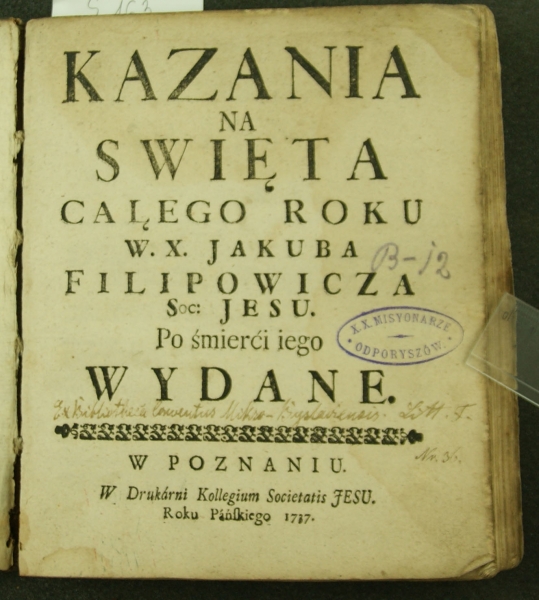 S 163
KAZANIA
NA
SWIĘTA
CALĘGO ROKU
W. X. JAKUBA
B-12
FILIPOWICZA
Soc: JESU.
X.X. MISYONARZE
ODPORYSZÓW.
Po śmierći iego
WYDANE.
Ex Bibliotheca Conventus Litt. F.
W POZNANIU.
Nr. 3.
W Drukárni Kollegium Societatis JESU.
Roku Páńſkiego 1737.